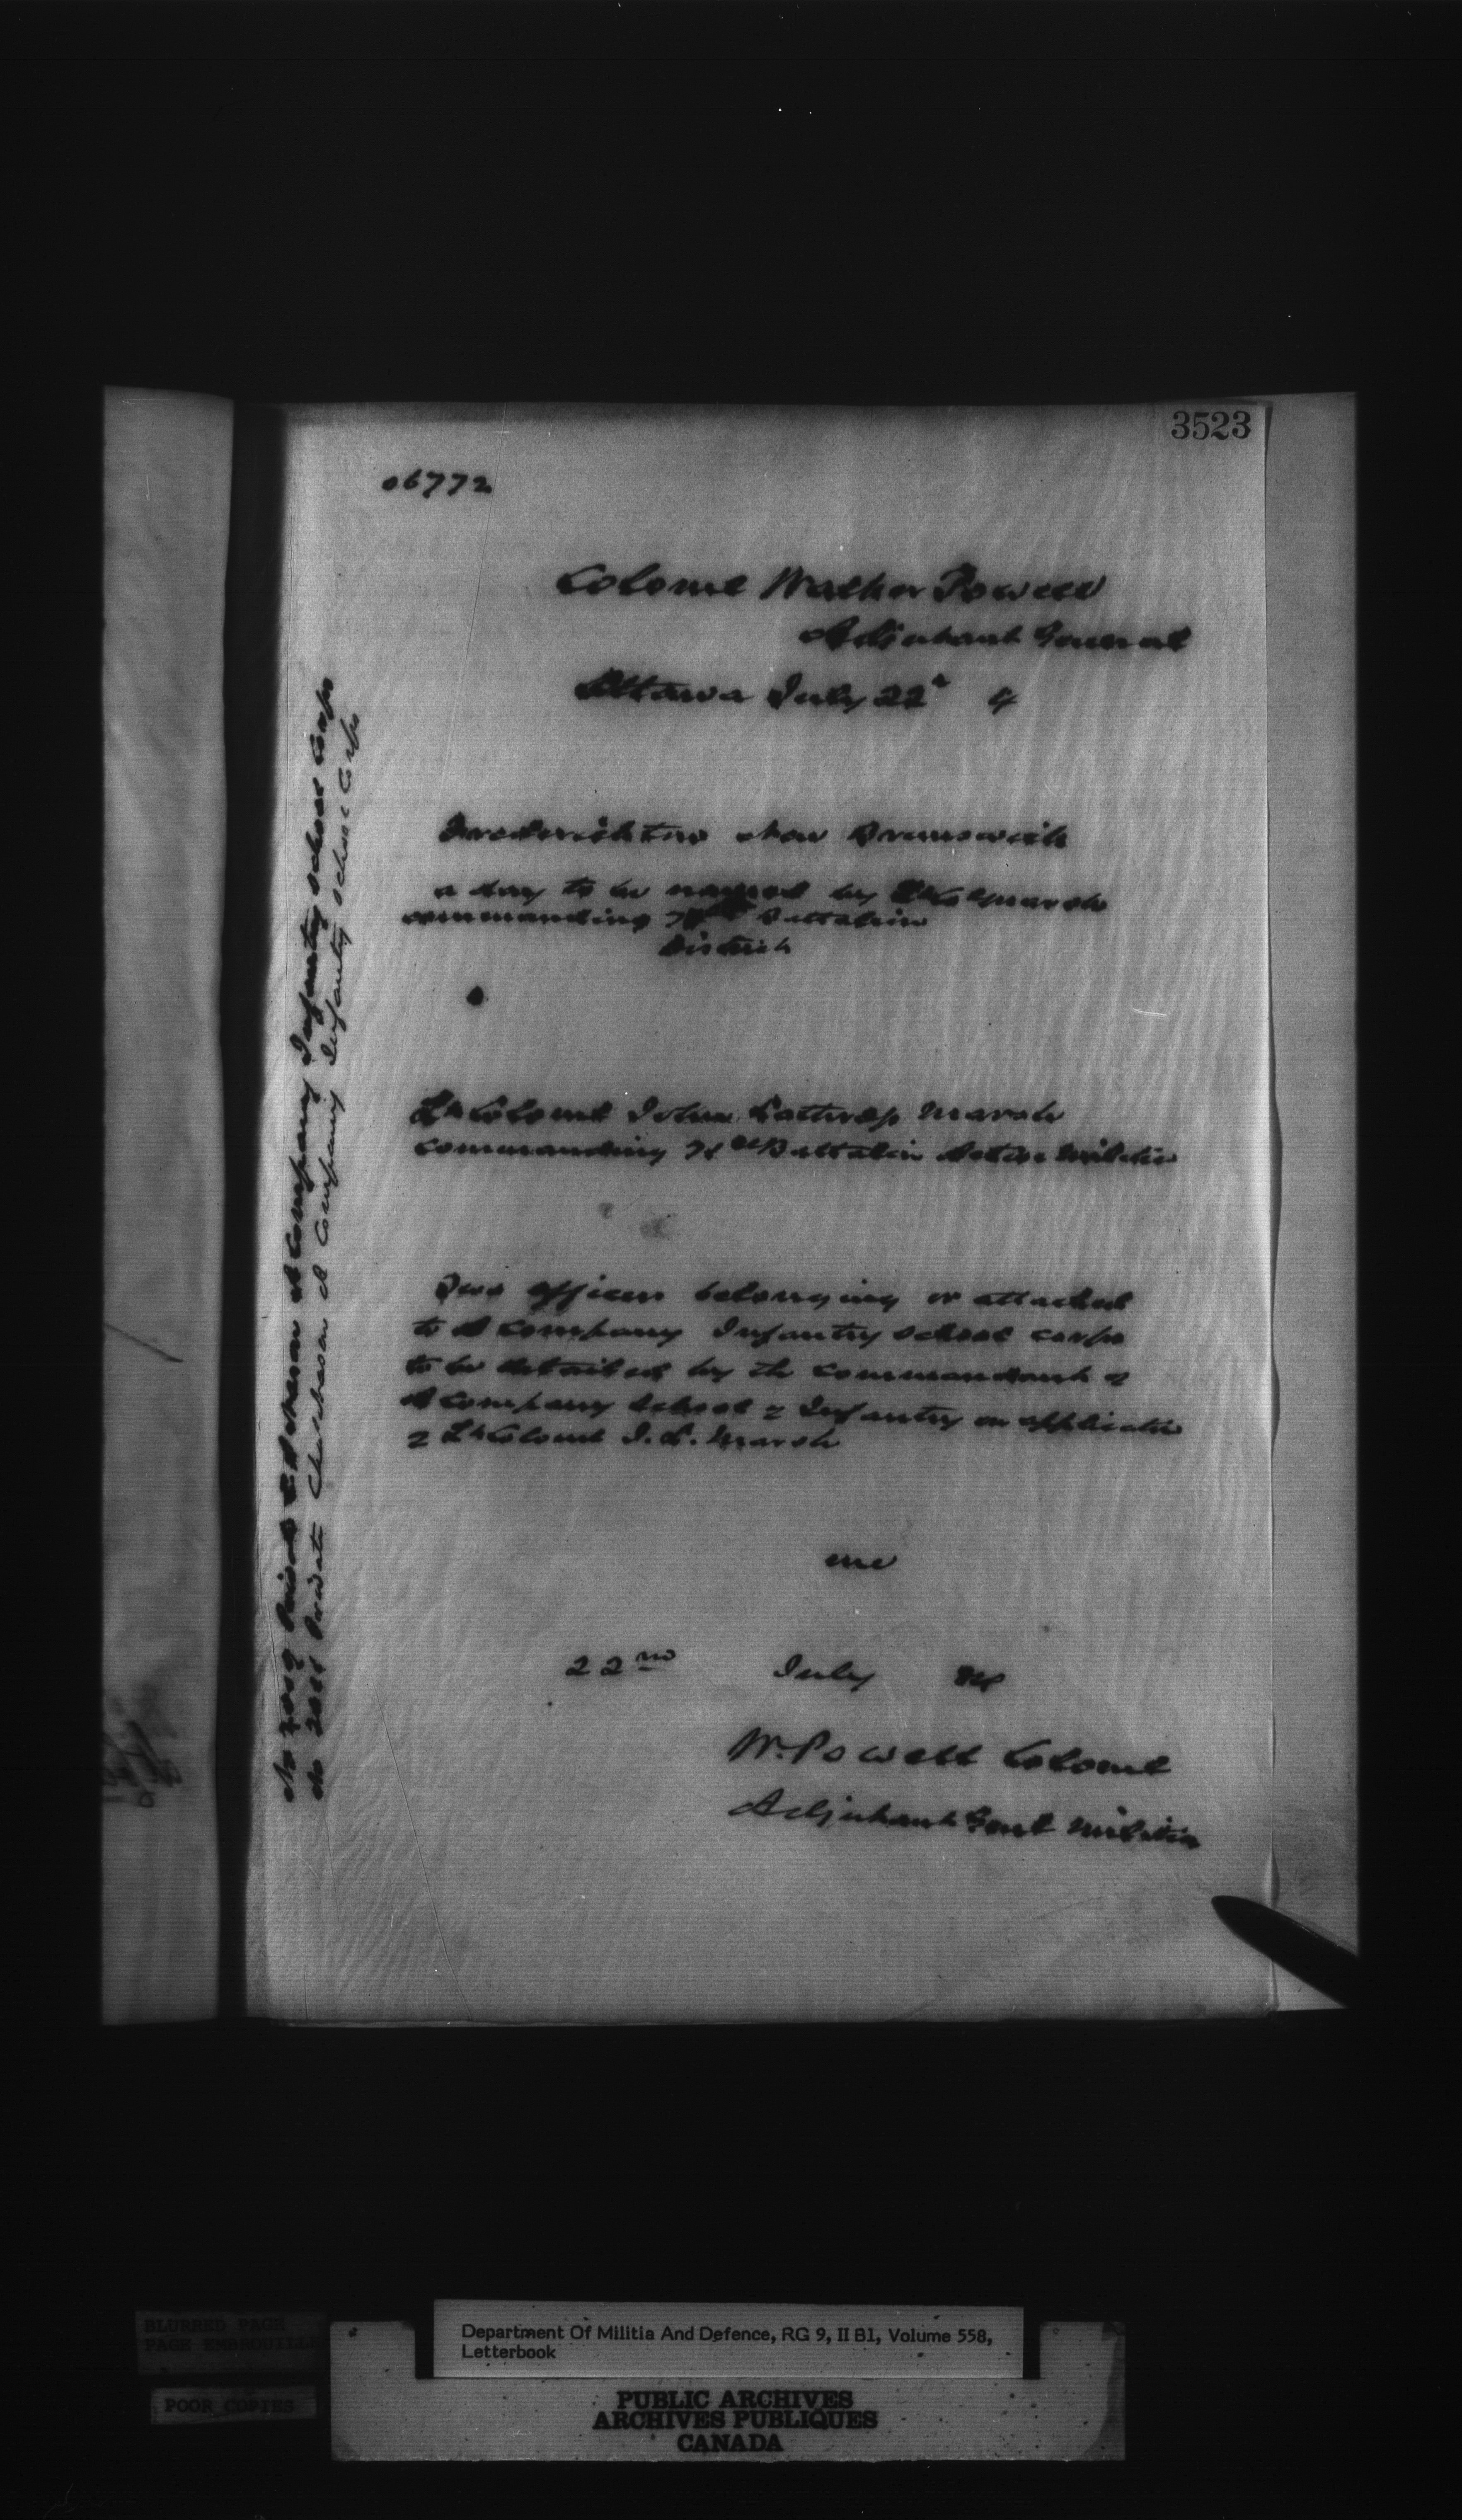 3523
06772
Colonel Walker Powell
Adjutant General
Ottawa July 22d 4
Fredericton New Brunswick
a day to be named by Lt Col Marsh
commanding 71st Battalion
District
Lt Colonel John Lothrop Marsh
commanding 71st Battalion Active Militia
Two officers belonging or attached
to A Company Infantry School Corps
to be detailed by the Commandant of
A Company School of Infantry on application
of Lt Colonel J. L. Marsh
me
22nd July 84
W. Powell Colonel
Adjutant Genl Militia
No Private A Company Infantry School Corps
No Private A Company Infantry School Corps
BLURRED PAGE
PAGE EMBROUILLE
POOR COPIES
Department Of Militia And Defence, RG 9, II B1, Volume 558,
Letterbook
PUBLIC ARCHIVES
ARCHIVES PUBLIQUES
CANADA